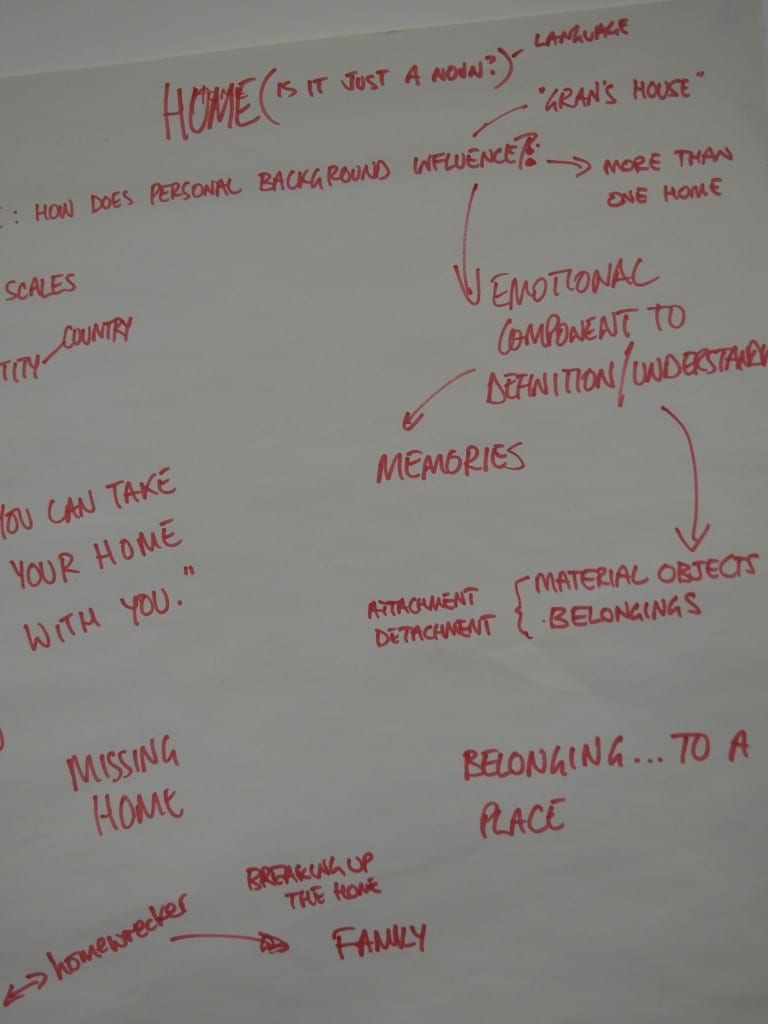 HOME (IS IT JUST A NOUN?) - LANGUAGE
"GRAN'S HOUSE"
: HOW DOES PERSONAL BACKGROUND INFLUENCE?
MORE THAN
ONE HOME
SCALES
TITY
COUNTRY
EMOTIONAL
COMPONENT TO
DEFINITION/UNDERSTAND
MEMORIES
YOU CAN TAKE
YOUR HOME
WITH YOU."
ATTACHMENT
DETACHMENT
{ MATERIAL OBJECTS
. BELONGINGS
MISSING
HOME
BELONGING... TO A
PLACE
BREAKING UP
THE HOME
homewrecker
FAMILY